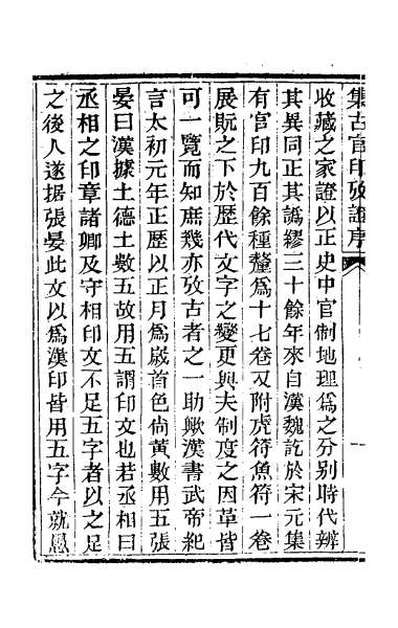 集古官印攷證序
收藏之家證以正史中官制地理爲之分别時代辨
其異同正其譌繆三十餘年來自漢魏訖於宋元集
有官印九百餘種釐爲十七卷又附虎符魚符一卷
展翫之下於歷代文字之變更與夫制度之因革皆
可一覽而知庶幾亦攷古者之一助歟漢書武帝紀
言太初元年正歷以正月爲歲首色尙黃數用五張
晏曰漢據土德土數五故用五謂印文也若丞相曰
丞相之印章諸卿及守相印文不足五字者以之足
之後人遂据張晏此文以爲漢印皆用五字今就恩